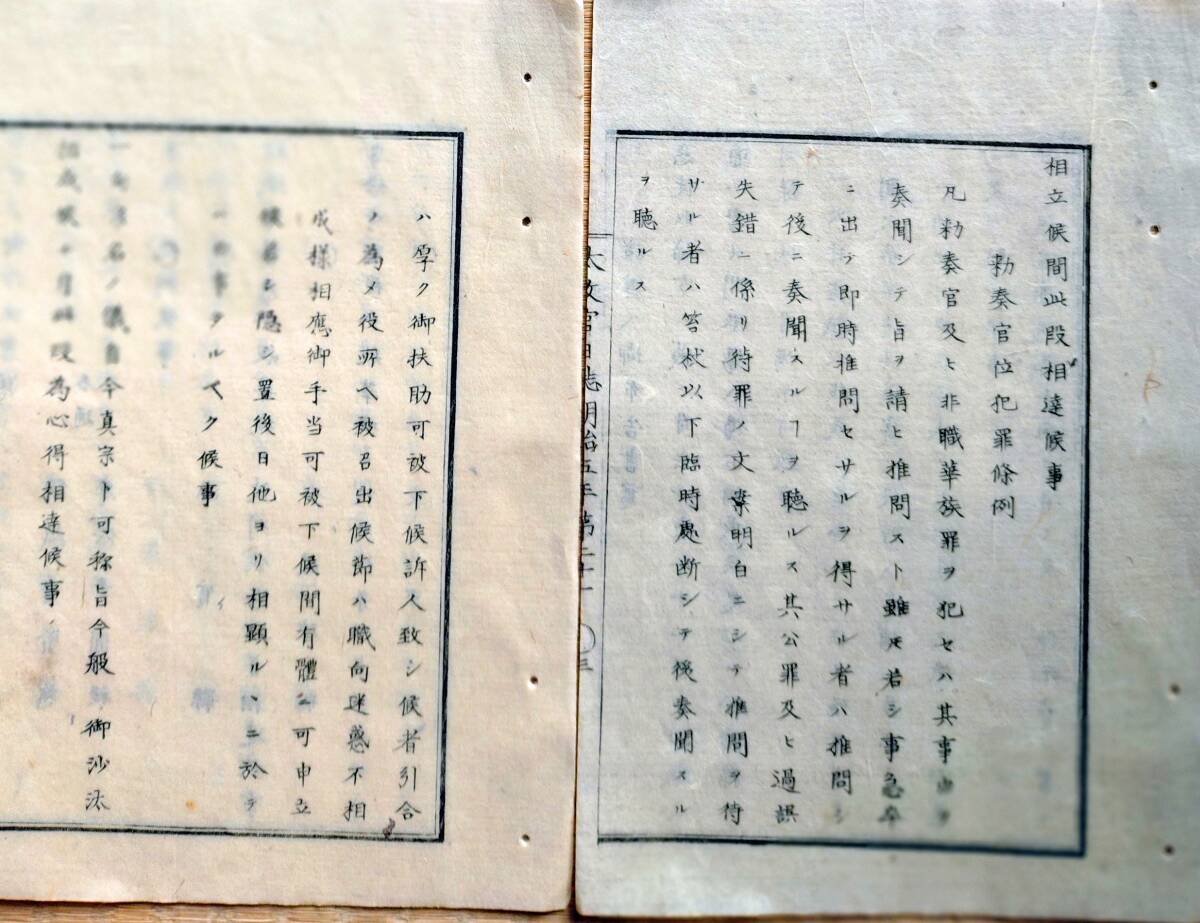 相立候間此段相達候事
勅奏官位犯罪條例
凡勅奏官及ヒ非職華族罪ヲ犯セハ其事由ヲ
奏聞シテ旨ヲ請ヒ推問スト雖𪜈若シ事急卒
ニ出テ即時推問セサルヲ得サル者ハ推問シ
テ後ニ奏聞スルヿヲ聴ルス其公罪及ヒ過誤
失錯ニ係リ待罪ノ文案明白ニシテ推問ヲ待
サル者ハ笞杖以下臨時處断シテ後奏聞スル
ヲ聴ルス
太政官日誌明治五年第二十
三
ハ厚ク御扶助可被下候訴人致シ候者引合
ノ為メ役所ヘ被召出候節ハ職向迷惑不相
成様相應御手当可被下候間有體ニ可申立
候若シ隠シ置後日他ヨリ相顕ルヽニ於テ
事タルヘク候事
一向宗名ノ儀自今真宗ト可称旨今般御沙汰
相成候ニ付此段為心得相達候事